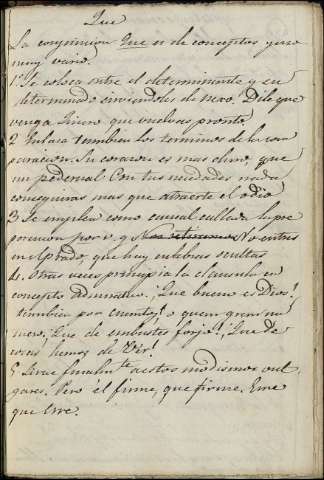 Que
La conjuncion Que es de conceptos y uso
muy vario.
1º Se coloca entre el determinante y su
determinado sirviendoles de nexo. Dile que
venga. Quiero que vuelvas pronto
2 Enlaza tambien los terminos de la com
paracion. Su corazon es mas duro, que
un pedernal Con tus necedades nada
conseguiras mas que atraerte el odio
3 Se emplea como causal callada la pre
posicion por v. g. No entres
en el prado, que hay culebras ocultas
4. Otras veces principia la clausula en
concepto admirativo. ¡Que bueno es Dios!
tambien por cuanto, o quan gran nú
mero; ¡Que de embustes forjó! ¡Que de
cosas hemos de ver!
5 Sirve finalmte a estos modismos vul
gares. Pero él firme, que firme. Erre
que Erre.